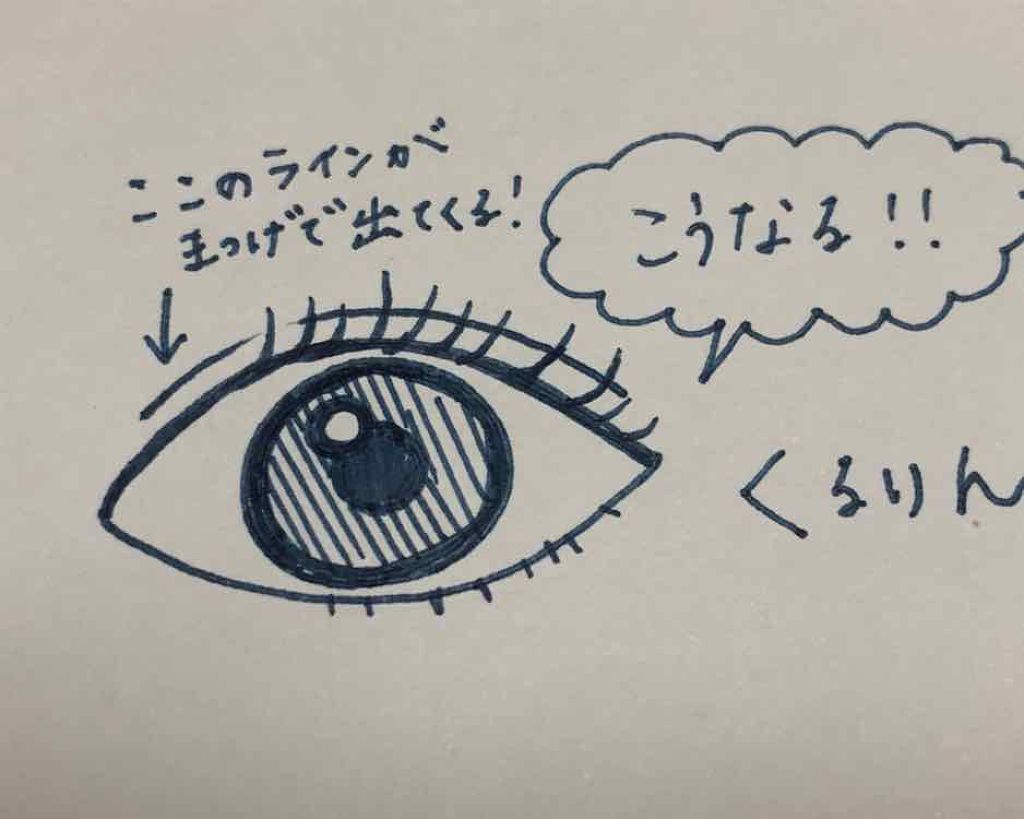 ここのラインが
まつげで出てくる!
こうなる!!
くるりん